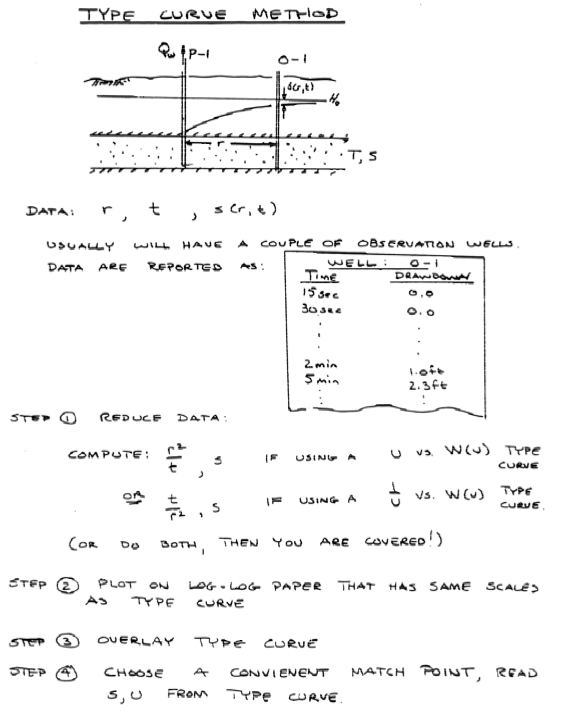 TYPE CURVE METHOD
Qw P-1
O-1
s(r,t)
H₀
r
T, S
DATA: r, t, s(r,t)
USUALLY WILL HAVE A COUPLE OF OBSERVATION WELLS.
DATA ARE REPORTED AS:
WELL: O-1
TIME DRAWDOWN
15 sec 0.0
30 sec 0.0
2 min 1.0ft
5 min 2.3ft
STEP ① REDUCE DATA:
COMPUTE: r²/t, s IF USING A U VS. W(U) TYPE CURVE
OR t/r², s IF USING A 1/U VS. W(U) TYPE CURVE.
(OR DO BOTH, THEN YOU ARE COVERED!)
STEP ② PLOT ON LOG-LOG PAPER THAT HAS SAME SCALES
AS TYPE CURVE
STEP ③ OVERLAY TYPE CURVE
STEP ④ CHOOSE A CONVIENENT MATCH POINT, READ
S, U FROM TYPE CURVE.